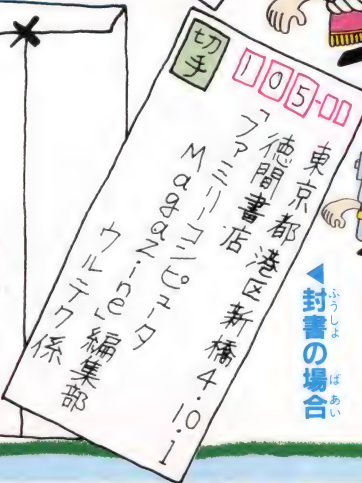 切手
105-
東京都港区新橋4.10.1
徳間書店
「ファミリーコンピュータ
Magazine」編集部
ウルテク係
◀封書の場合
ふうしょ ばあい